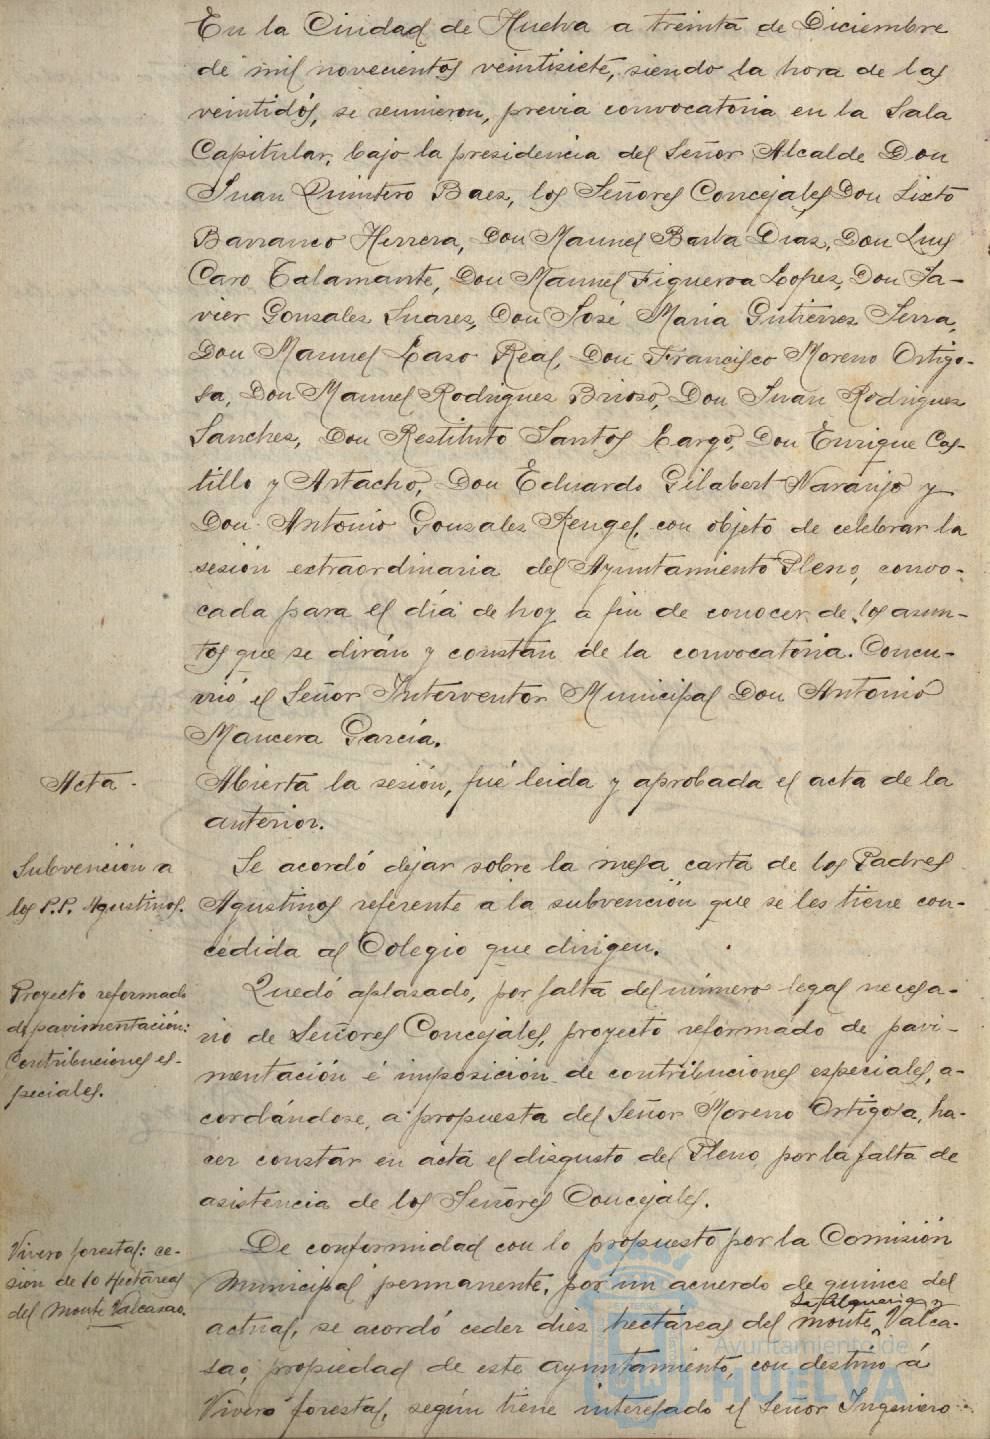 En la Ciudad de Huelva a treinta de Diciembre
de mil novecientos veintisiete, siendo la hora de las
veintidós, se reunieron, previa convocatoria en la Sala
Capitular, bajo la presidencia del Señor Alcalde Don
Juan Quintero Baez, los Señores Concejales Don Sixto
Barranco Herrera, Don Manuel Barba Díaz, Don Luis
Caro Talamante, Don Manuel Figueroa Lopez, Don Ja-
vier Gonzalez Suarez, Don José Maria Gutierrez Serra,
Don Manuel Lazo Real, Don Francisco Moreno Ortigo-
sa, Don Manuel Rodriguez Brioso, Don Juan Rodriguez
Sanchez, Don Restituto Santos Largo, Don Enrique Cas-
tillo y Artacho, Don Eduardo Gilabert Naranjo y
Don Antonio Gonzalez Rengel, con objeto de celebrar la
sesión extraordinaria del Ayuntamiento Pleno, convo-
cada para el día de hoy a fin de conocer de los asun-
tos que se dirán y constan de la convocatoria. Concu-
rrió el Señor Interventor Municipal Don Antonio
Mancera García.
Acta.
Abierta la sesión, fué leida y aprobada el acta de la
anterior.
Subvención a
los P.P. Agustinos.
Se acordó dejar sobre la mesa carta de los Padres
Agustinos referente a la subvención que se les tiene con-
cedida al Colegio que dirigen.
Proyecto reformado
de pavimentación:
Contribuciones es-
peciales.
Quedó aplazado, por falta del número legal necesa-
rio de Señores Concejales, proyecto reformado de pavi-
mentación é imposición de contribuciones especiales, a-
cordándose, a propuesta del Señor Moreno Ortigosa, ha-
cer constar en acta el disgusto del Pleno por la falta de
asistencia de los Señores Concejales.
Vivero forestal: ce-
sión de 10 Hectáreas
del Monte Valcasao.
De conformidad con lo propuesto por la Comisión
Municipal permanente, por un acuerdo de quince del
La Alqueria y
actual, se acordó ceder diez hectareas del monte Valca-
sao, propiedad de este ayuntamiento, con destino á
Vivero forestal, según tiene interesado el Señor Ingeniero
Ayuntamiento de
HUELVA